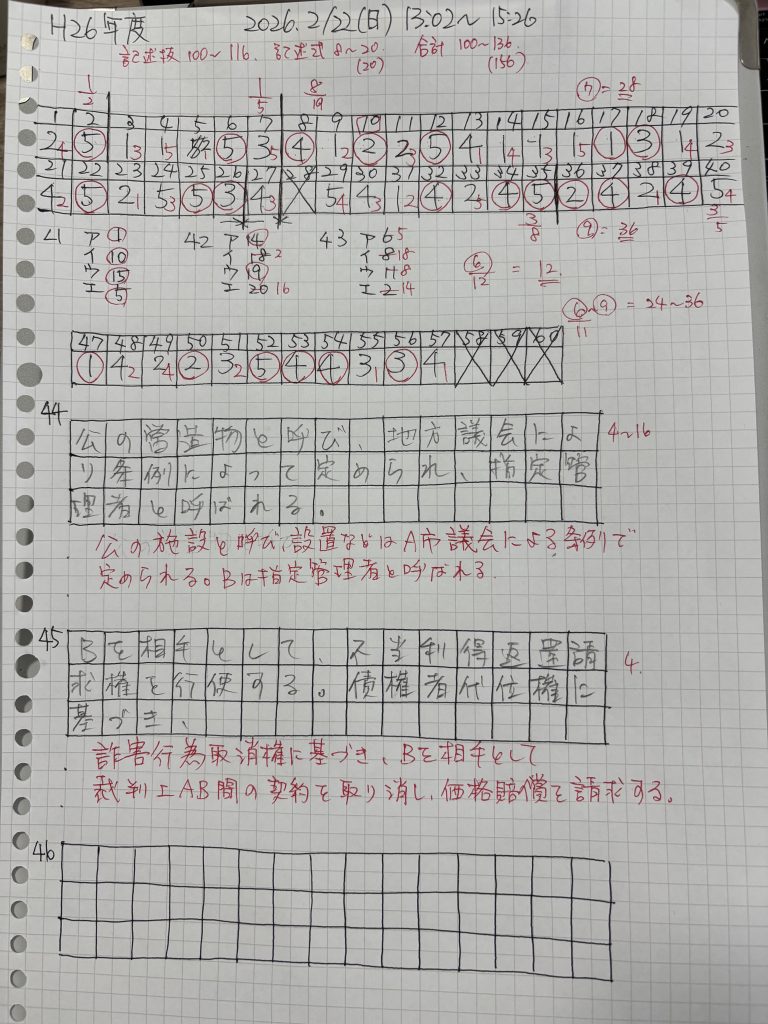 H26年度 2026.2/22(日) 13:02〜15:26
記述抜 100〜116. 記述式 8〜20 (20) 合計 100〜136 (156)
1/2 1/5 8/19 ⑦=28
1 2 3 4 5 6 7 8 9 10 11 12 13 14 15 16 17 18 19 20
24 ⑤ 13 15 4 ⑤ 35 ④ 12 ② 23 ⑤ 41 14 13 15 ① ③ 14 23
21 22 23 24 25 26 27 28 29 30 31 32 33 34 35 36 37 38 39 40
42 ⑤ 21 53 ⑤ ③ 43 54 43 12 ④ 25 ④ ⑤ ② ④ 21 ④ 54
3/8 ⑨=36 3/5
41 ア① 42 ア⑭ 43 ア6 5
イ⑩ イ18 2 イ8 18 6/12 = 12
ウ⑮ ウ⑨ ウ11 8
エ⑤ エ20 16 エ2 14
⑥〜⑨/11 = 24〜36
47 48 49 50 51 52 53 54 55 56 57 58 59 60
① 42 24 ② 32 ⑤ ④ ④ 31 ③ 41
44
公の営造物と呼び、地方議会によ 4〜16
り条例によって定められ、指定管
理者と呼ばれる。
公の施設と呼び、設置などはA市議会による条例で
定められる。Bは指定管理者と呼ばれる
45
Bを相手として、不当利得返還請 4.
求権を行使する。債権者代位権に
基づき、
詐害行為取消権に基づき、Bを相手として
裁判上AB間の契約を取り消し、価格賠償を請求する。
46